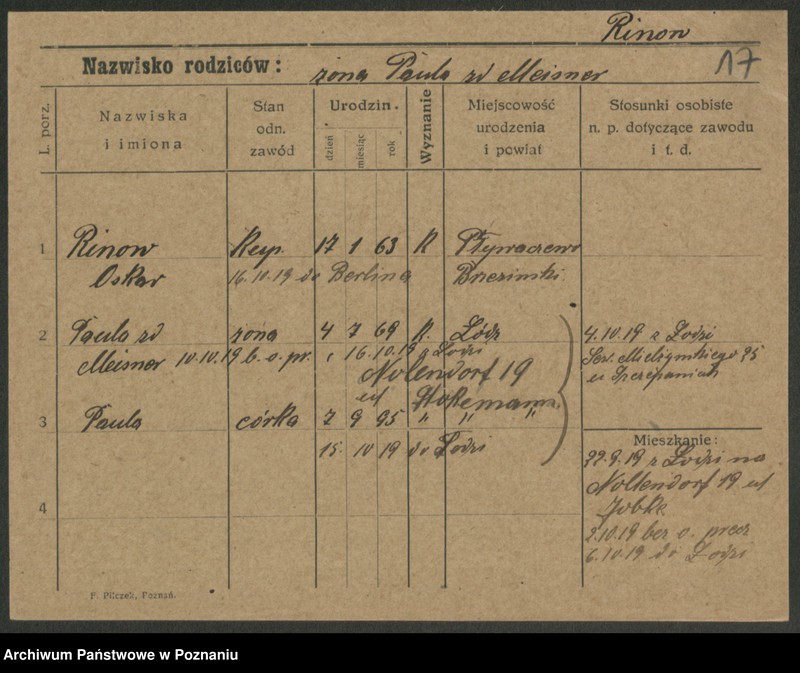 Rinow
17
Nazwisko rodziców: żona Paula zd Meisner
L. porz.
Nazwiska i imiona
Stan odn. zawód
Urodzin.
dzień
miesiąc
rok
Wyznanie
Miejscowość urodzenia i powiat
Stosunki osobiste n. p. dotyczące zawodu i t. d.
1 Rinow Kup. 17 1 63 K
Oskar 16.10.19 do Berlina Brezinski
2 Paula zd żona 4 7 69 K. Łódź 4.10.19 z Łodzi
Meisner 10.10.19 b. o. pr. 16.10.19 z Łodzi
Nolendorf 19
ul
3 Paula córka 7 9 95 " " "
15 10 19 do Łodzi
Mieszkanie:
22.9.19 z Łodzi na
Nollendorf 19 ul
2.10.19 bez o.
4
6.10.19 do Łodzi
F. Pilczek, Poznań.
Archiwum Państwowe w Poznaniu